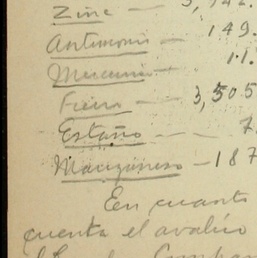 Zinc — 3,942.
Antimonio — 149.
Mercurio — 11.
Fierro — 3,505
Estaño — — 7.
Manganeso — 187
En cuanto
cuenta el avalúo